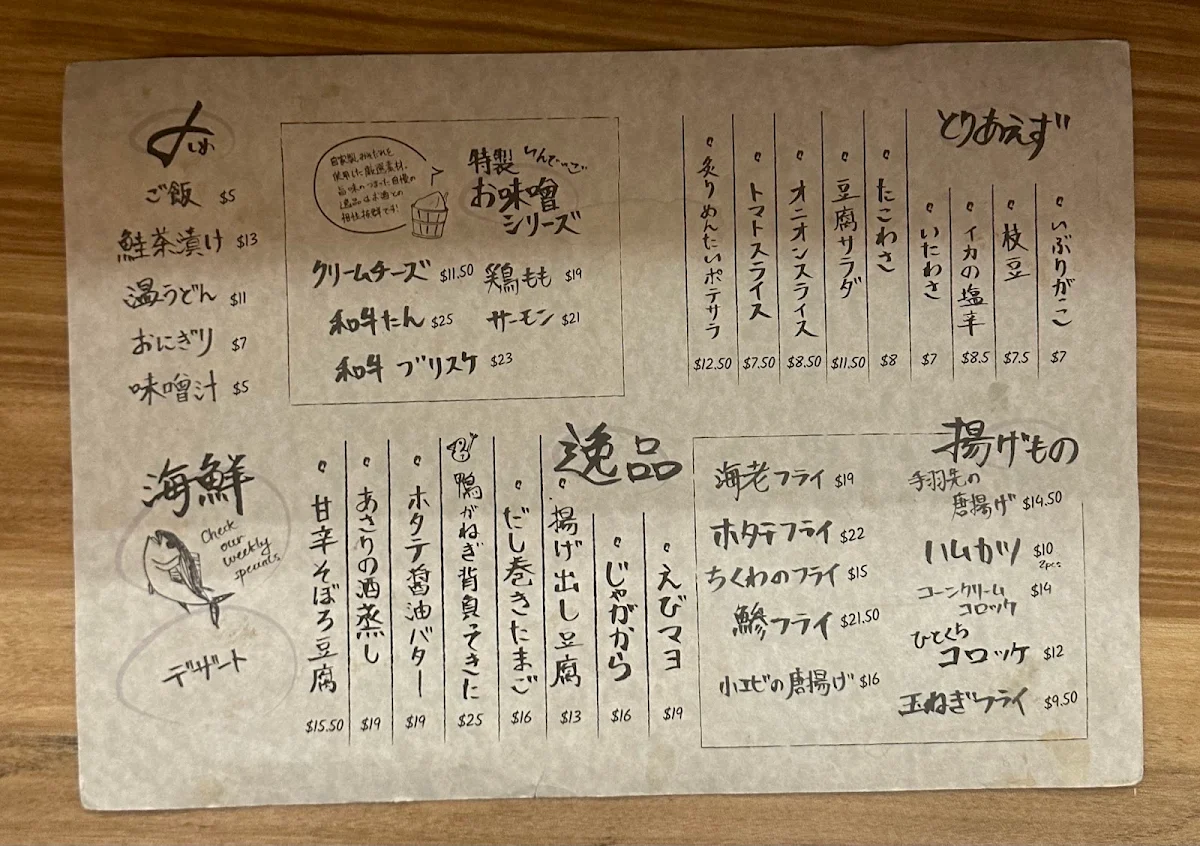 とりあえず
いぶりがっこ
$7
枝豆
$7.5
イカの塩辛
$8.5
いたわさ
$7
たこわさ
$8
豆腐サラダ
$11.50
オニオンスライス
$8.50
トマトスライス
$7.50
炙りめんたいポテサラ
$12.50
特製
お味噌
シリーズ
自家製みそだれを
使用した厳選素材。
旨味のつまった自慢の
逸品はお酒との
相性抜群です!
クリームチーズ $11.50
鶏もも $19
和牛たん $25
サーモン $21
和牛 ブリスケ $23
〆しめ
ご飯 $5
鮭茶漬け $13
温うどん $11
おにぎり $7
味噌汁 $5
揚げもの
手羽先の
唐揚げ $14.50
ハムカツ $10
2pcs
コーンクリーム
コロッケ $14
ひとくち
コロッケ $12
玉ねぎフライ $9.50
海老フライ $19
ホタテフライ $22
ちくわのフライ $15
鯵フライ $21.50
小エビの唐揚げ $16
逸品
えびマヨ
$19
じゃがから
$16
揚げ出し豆腐
$13
だし巻きたまご
$16
鴨がねぎ背負ってきた
$25
ホタテ醤油バター
$19
あさりの酒蒸し
$19
甘辛そぼろ豆腐
$15.50
海鮮
Check
our
weekly
specials
デザート